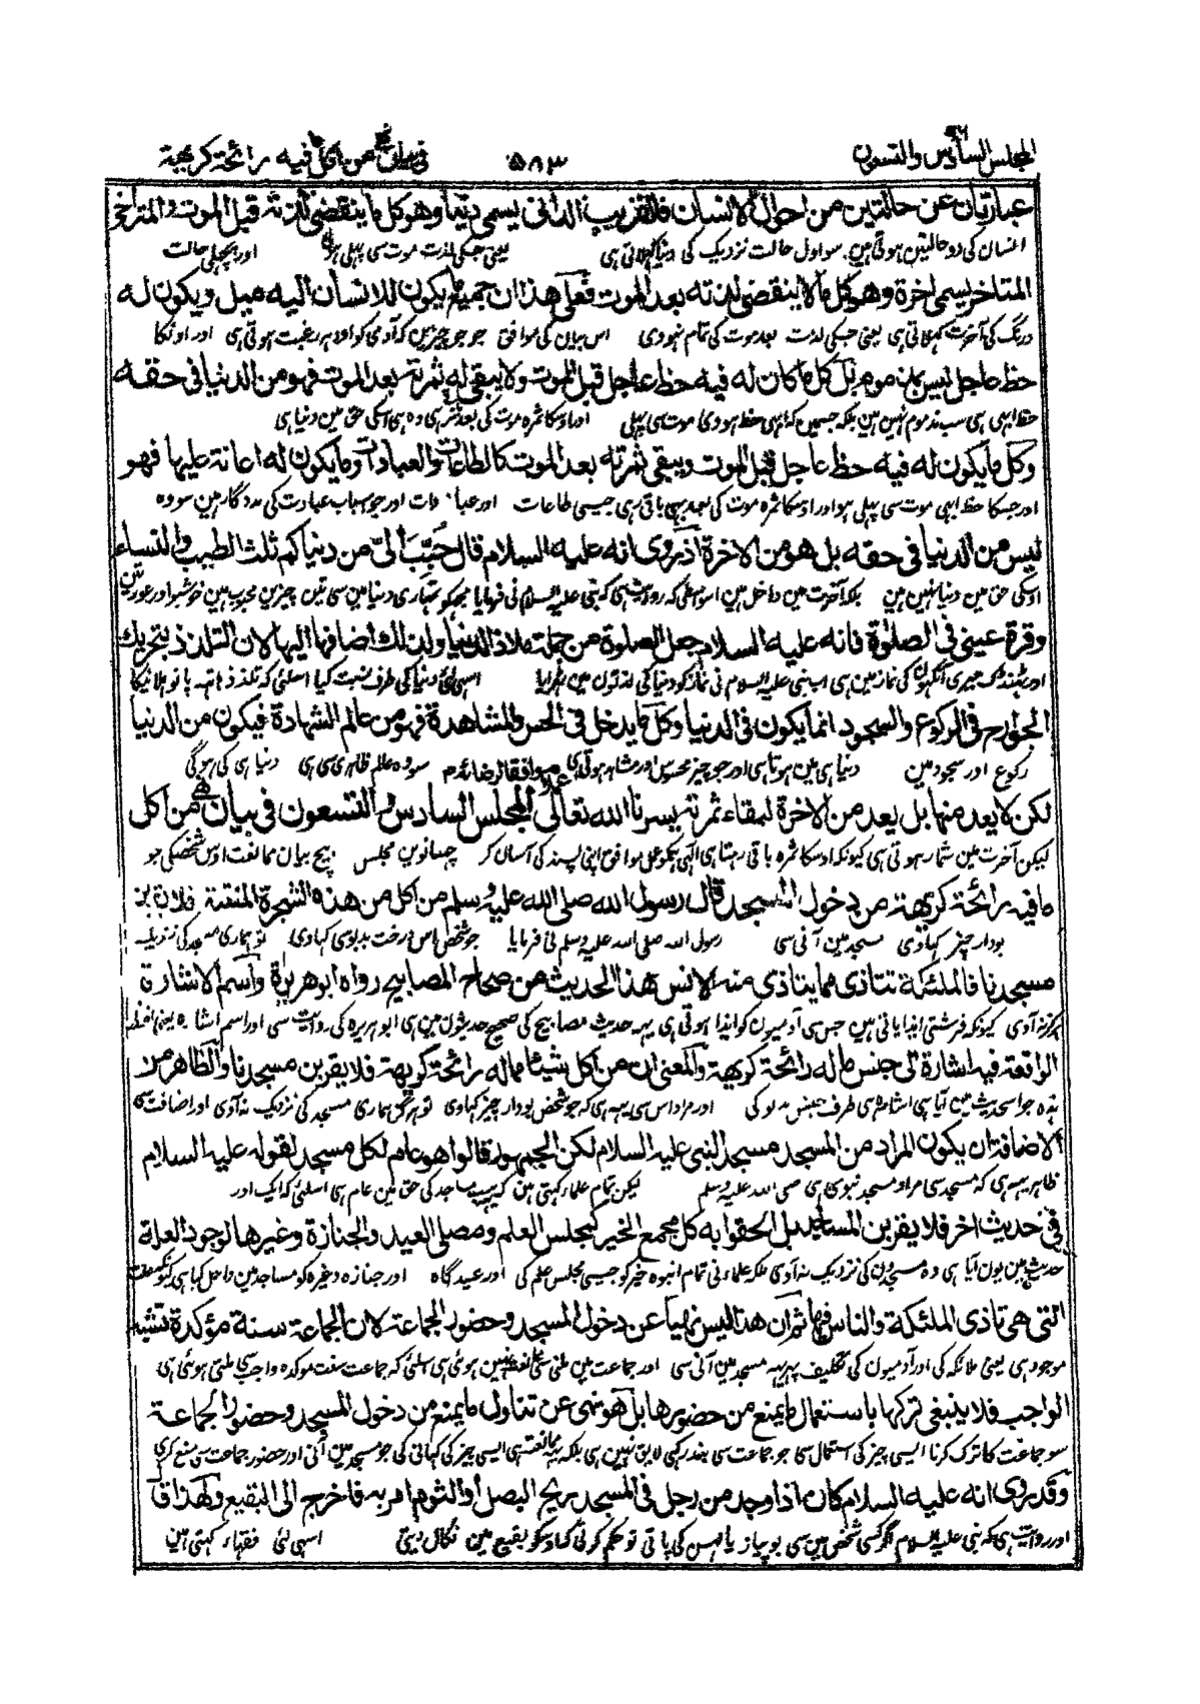 المجلس السادس والتسعون ٩٦ ٥٨٣ فى بيان نهى من اكل ما فيه رائحة كريهة
عبارتان عن حالتين من احوال الانسان فالقريب الدانى يسمى دنيا وهو كل ما ينقضى لذته قبل الموت والمتراخى
انسان کی دو حالتین ہوتی ہین سو اول حالت نزدیک کی دنیا کہلاتی ہی یعنی جسکی لذت موت سی پہلی اور پچہلی حالت
المتاخر يسمى اخرة وهو كل ما لا ينقضى لذته بعد الموت فعلى هذا ان جميع ما يكون للانسان اليه ميل ويكون له
درنگ کی آخرت کہلاتی ہی یعنی جسکی لذت بعد موت کی تمام نہووی اس بیان کی موافق جو جو چیزین کہ آدمی کو اودہر رغبت ہوتی ہی اور اونکا
حظ عاجل ليس بمذموم بل كل ما كان له فيه حظ عاجل قبل الموت ولا يبقى له ثمرته بعد الموت فهو من الدنيا فى حقه
حظ ابہی ہی سب مذموم نہین ہین بلکہ جسمین کہ ابہی حظ ہووی موت سی پہلی اور اوسکا ثمرہ موت کی بعد نہ رہی وہ ہی اسکی حق مین دنیا ہی
وكل ما يكون له فيه حظ عاجل قبل الموت ويبقى ثمرته بعد الموت كالطاعات والعبادات وما يكون له اعانة عليها فهو
اور جسکا حظ ابہی موت سی پہلی ہو اور اوسکا ثمرہ موت کی بعد بہی باقی رہی جیسی طاعات اور عبادات اور جو اسباب عبادت کی مددگار ہین سو وہ
ليس من الدنيا فى حقه بل هو من الاخرة اذ روى انه عليه السلام قال حبب الى من دنياكم ثلث الطيب والنساء
اوسکی حق مین دنیا نہین ہین بلکہ آخرت مین داخل ہین اسواسطی کہ روایت ہی کہ نبی علیہ السلام نی فرمایا مجہکو تمہاری دنیا مین سی تین چیزین محبوب ہین خوشبو اور عورتین
وقرة عينى فى الصلوة فانه عليه السلام جعل الصلوة من جملة ملاذ الدنيا ولذلك اضافها اليها لان التلذذ بتحريك
اور ٹہنڈک میری آنکہون کی نماز مین ہی اب نبی علیہ السلام نی نماز کو دنیا کی لذتون مین ٹہرایا اسی لئی دنیا کی طرف نسبت کیا اسلئی کہ تلذذ ہاتہہ پانو ہلانیکا
الجوارح فى الركوع والسجود انما يكون فى الدنيا وكل ما يدخل فى الحس والمشاهدة فهو من عالم الشهادة فيكون من الدنيا
رکوع اور سجود مین دنیا ہی مین ہوتا ہی اور جو چیز محسوس اور مشاہد ہوتی ہی سو وہ عالم ظاہری سی ہی دنیا ہی کی ہوگی
لكن لا يعد منها بل يعد من الاخرة لبقاء ثمرته يسرنا الله تعالى المجلس السادس والتسعون فى بيان نهى من اكل
لیکن آخرت مین شمار ہوتی ہی کیونکہ اوسکا ثمرہ باقی رہتا ہی الہی ہمکو عمل موافق اپنی پسند کی آسان کر چہیانوین مجلس بیچ بیان ممانعت اوس شخصکی جو
ما فيه رائحة كريهة من دخول المسجد قال رسول الله صلى الله عليه وسلم من اكل من هذه الشجرة المنتنة فلا يقربن
بودار چیز کہاوی مسجد مین آنی سی رسول اللہ صلی اللہ علیہ وسلم نی فرمایا جو شخص اس درخت بدبو سی کہاوی تو ہماری مسجد کی نزدیک
مسجدنا فالملئكة تتاذى مما يتاذى منه الانس هذا الحديث من صحاح المصابيح رواه ابو هريرة واسم الاشارة
ہرگز نہ آوی کیونکہ فرشتی ایذا پاتی ہین جس سی آدمیون کو ایذا ہوتی ہی یہہ حدیث مصابیح کی صحیح حدیثون مین ہی ابو ہریرہ کی روایت سی اور اسم اشارہ یعنی لفظ
الواقعة فيه اشارة الى جنس ما له رائحة كريهة والمعنى ان من اكل شيئا مما له رائحة كريهة فلا يقربن مسجدنا والظاهر من
ہذہ جو اس حدیث مین آیا ہی اشارہ ہی طرف جنس بدبو کی اور مراد اس سی یہہ ہی کہ جو شخص بودار چیز کہاوی تو ہرگز ہماری مسجد کی نزدیک نہ آوی اور اضافت سی
الاضافة ان يكون المراد من المسجد مسجد النبى عليه السلام لكن الجمهور قالوا هو عام لكل مسجد لقوله عليه السلام
ظاہر یہہ ہی کہ مسجد سی مراد مسجد نبوی ہی صلی اللہ علیہ وسلم لیکن تمام علماء کہتی ہین کہ سب مساجد کی حق مین عام ہی اسلئی کہ ایک اور
فى حديث اخر فلا يقربن المساجد بل الحقوا به كل مجمع الخير كمجلس العلم ومصلى العيد والجنازة وغيرها لوجود العلة
حدیث مین یون آیا ہی وہ مسجدون کی نزدیک نہ آوی بلکہ علماء نی تمام انبوہ خیر کو جیسی مجلس علم کی اور عیدگاہ اور جنازہ وغیرہ کو مساجد مین داخل کیا ہی کیونکہ علت
التى هى تاذى الملئكة والناس فيها ثم ان هذا ليس نهيا عن دخول المسجد وحضور الجماعة لان الجماعة سنة مؤكدة تشبه
موجود ہی یعنی ملائکہ کی اور آدمیون کی تکلیف پہر یہہ مسجد مین آنی سی اور جماعت مین ملنی سی منع نہین ہوئی ہی اسلئی کہ جماعت سنت موکدہ واجب سی ملتی ہوئی ہی
الواجب فلا ينبغى تركها باستعمال ما يمنع من حضورها بل هو نهى عن تناول ما يمنع من دخول المسجد وحضور الجماعة
سو جماعت کا ترک کرنا ایسی چیز کی استعمال سی جو جماعت سی بند کری لایق نہین ہی بلکہ یہہ ممانعت ہی ایسی چیز کی کہانی کی جو مسجد مین آنی اور حضور جماعت سی منع کری
وقد روى انه عليه السلام كان اذا وجد من رجل فى المسجد ريح البصل او الثوم امر به فاخرج الى البقيع ولهذا قال
اور روایت ہی کہ نبی علیہ السلام اگر کسی شخص مین سی بو پیاز یا لہسن کی پاتی تو حکم کرتی کہ اوسکو بقیع مین نکال دیتی اسی لئی فقہاء کہتی ہین